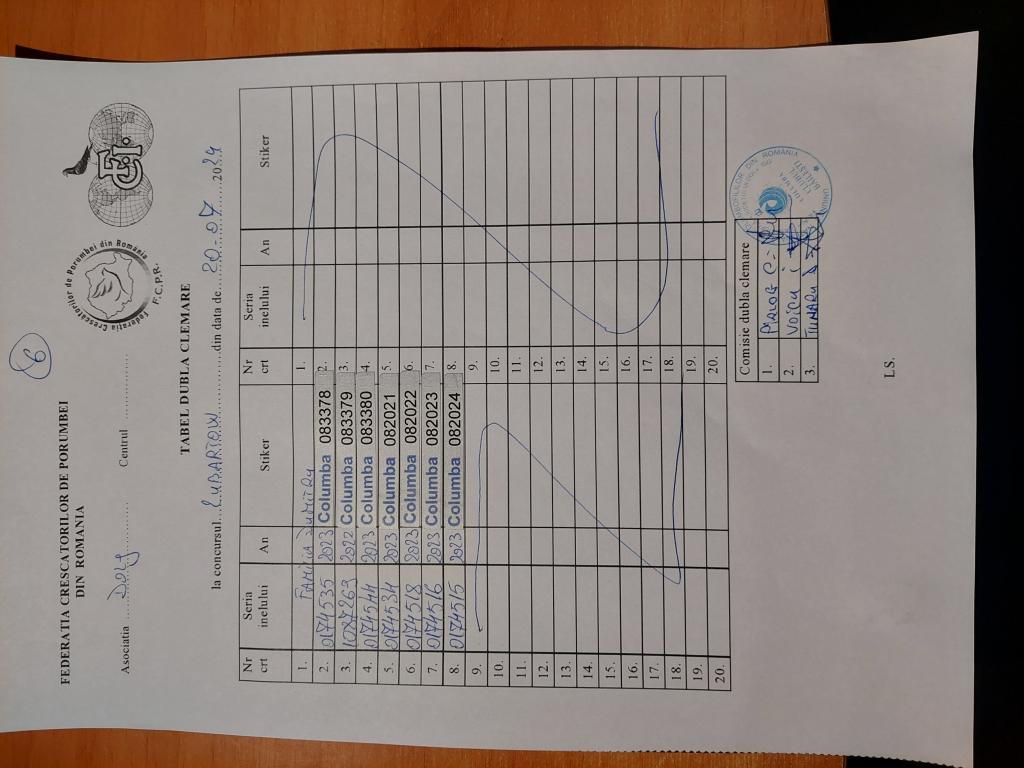 6
FEDERATIA CRESCATORILOR DE PORUMBEI
DIN ROMANIA
Federația Crescătorilor de Porumbei din România
F.C.P.R.
F.C.I.
Asociatia ..Dolj............ Centrul ..................
TABEL DUBLA CLEMARE
la concursul..LUBARTOW..................din data de....20-07......2024
Nr crt Seria inelului An Stiker Nr crt Seria inelului An Stiker
1. FAMILIA DUMITRU 1.
2. 0174535 2023 Columba 083378 2.
3. 1027263 2022 Columba 083379 3.
4. 0174544 2023 Columba 083380 4.
5. 0174534 2023 Columba 082021 5.
6. 0174518 2023 Columba 082022 6.
7. 0174516 2023 Columba 082023 7.
8. 0174515 2023 Columba 082024 8.
9. 9.
10. 10.
11. 11.
12. 12.
13. 13.
14. 14.
15. 15.
16. 16.
17. 17.
18. 18.
19. 19.
20. 20.
Comisie dubla clemare
1. PIRLOG C
2. VOICU I
3. TUNARU
DIN ROMÂNIA
LS.